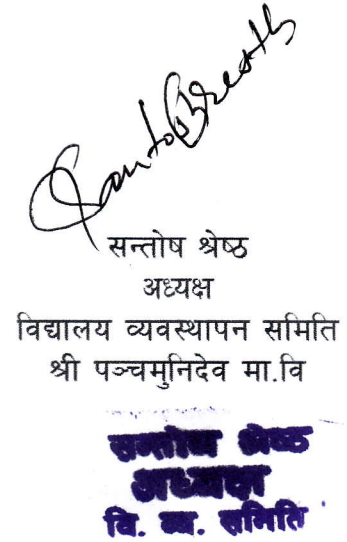 सन्तोष श्रेष्ठ
अध्यक्ष
विद्यालय व्यवस्थापन समिति
श्री पञ्चमुनिदेव मा.वि
सन्तोष श्रेष्ठ
अध्यक्ष
वि. व्य. समिति